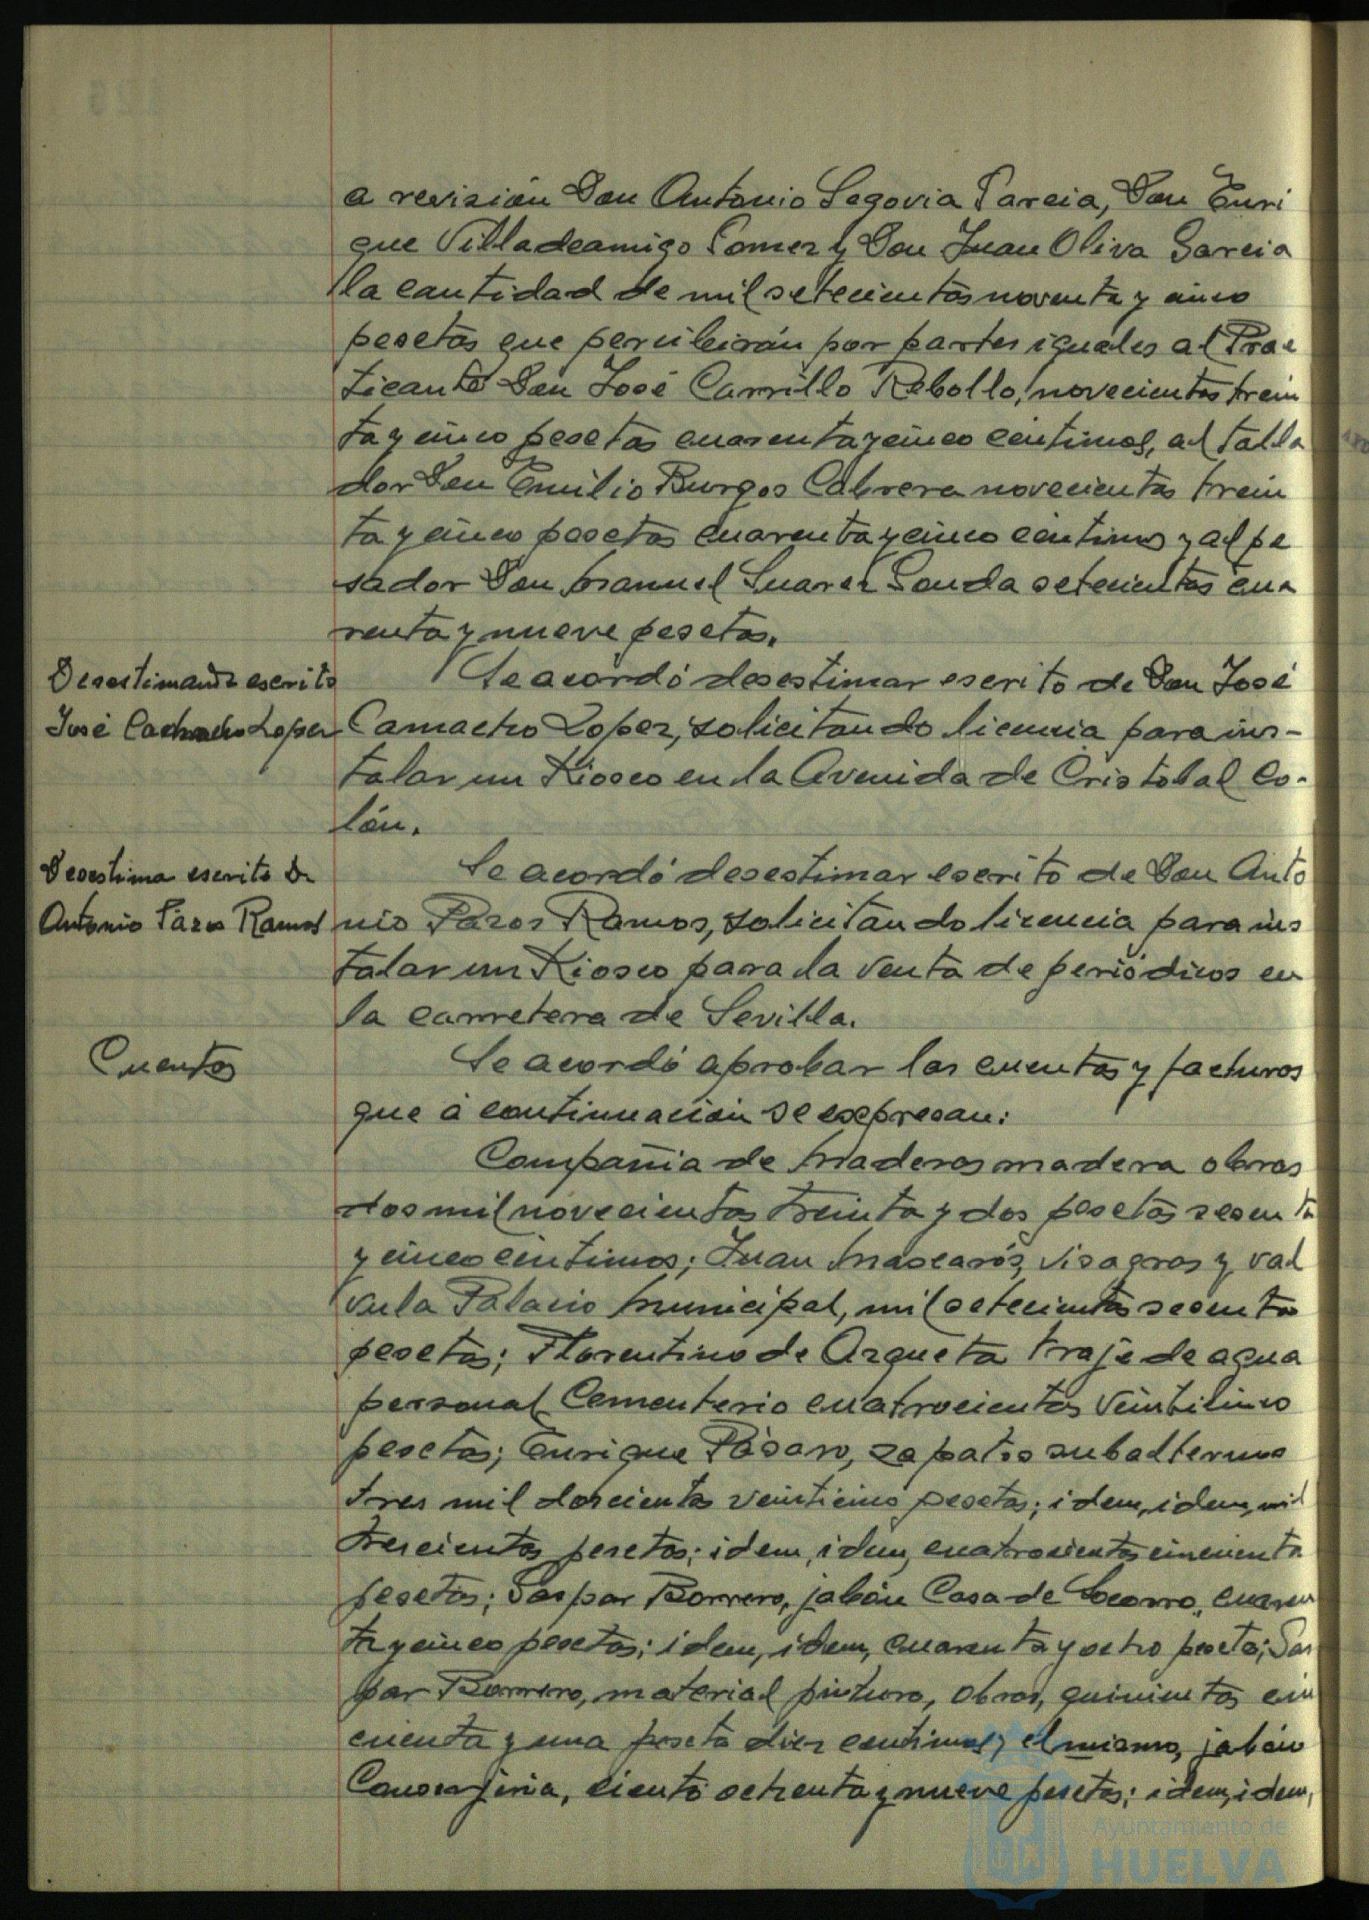 a revisión Don Antonio Segovia Garcia, Don Enri
que Villadeamigo Gomez y Don Juan Oliva Garcia
la cantidad de mil setecientas noventa y cinco
pesetas que percibirán por partes iguales al Prac
ticante Don José Carrillo Rebollo, novecientas trein
ta y cinco pesetas cuarenta y cinco centimos, al talla
dor Don Emilio Burgos Cabrera novecientas trein
ta y cinco pesetas cuarenta y cinco centimos y al pe
sador Don Manuel Suarez setecientas cua
renta y nueve pesetas.
Desestimando escrito
José Camacho Lopez
Se acordó desestimar escrito de Don José
Camacho Lopez, solicitando licencia para ins-
talar un Kiosco en la Avenida de Cristobal Co-
lón.
Desestima escrito D.
Antonio Pazos Ramos
Se acordó desestimar escrito de Don Anto
nio Pazos Ramos, solicitando licencia para ins
talar un Kiosco para la venta de periódicos en
la carretera de Sevilla.
Cuentas
Se acordó aprobar las cuentas y facturas
que á continuación se expresan:
Compañia de Maderas madera obras
dos mil novecientas treinta y dos pesetas sesenta
y cinco centimos; Juan Mascarós, visagras y val
vula Palacio Municipal, mil setecientas sesenta
pesetas; Florentino de Azqueta traje de agua
personal Cementerio cuatrocientas veinticinco
pesetas; Enrique Pásaro, zapatos subalternos
tres mil doscientas veinticinco pesetas; idem, idem, mil
trescientas pesetas; idem, idem, cuatrocientas cincuenta
pesetas; Gaspar Borrero, jabón Casa de Socorro, cuaren
ta y cinco pesetas; idem, idem, cuarenta y ocho pesetas; Gas
par Borrero, material pintura, obras, quinientas cin
cuenta y una peseta diez centimos; el mismo, jabón
Conserjeria, ciento ochenta y nueve pesetas; idem, idem,
Ayuntamiento de
HUELVA